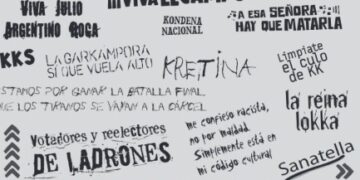 VIVA JULIO
ARGENTINO ROCA
KONDENA
NACIONAL
A ESA SEÑORA
HAY QUE MATARLA
KKS
LA GARKAMPORA
SI QUE VUELA ALTO
KRETINA
Limpiate
el culo
de KK
STAMOS POR GANAR LA BATALLA FINAL
QUE LOS TIRANOS SE VAYAN A LA CARCEL
la reina
lokka
Votadores y reelectores
DE LADRONES
me confieso racista,
no por maldad
Simplemente está en
mi código cultural
Sanatella